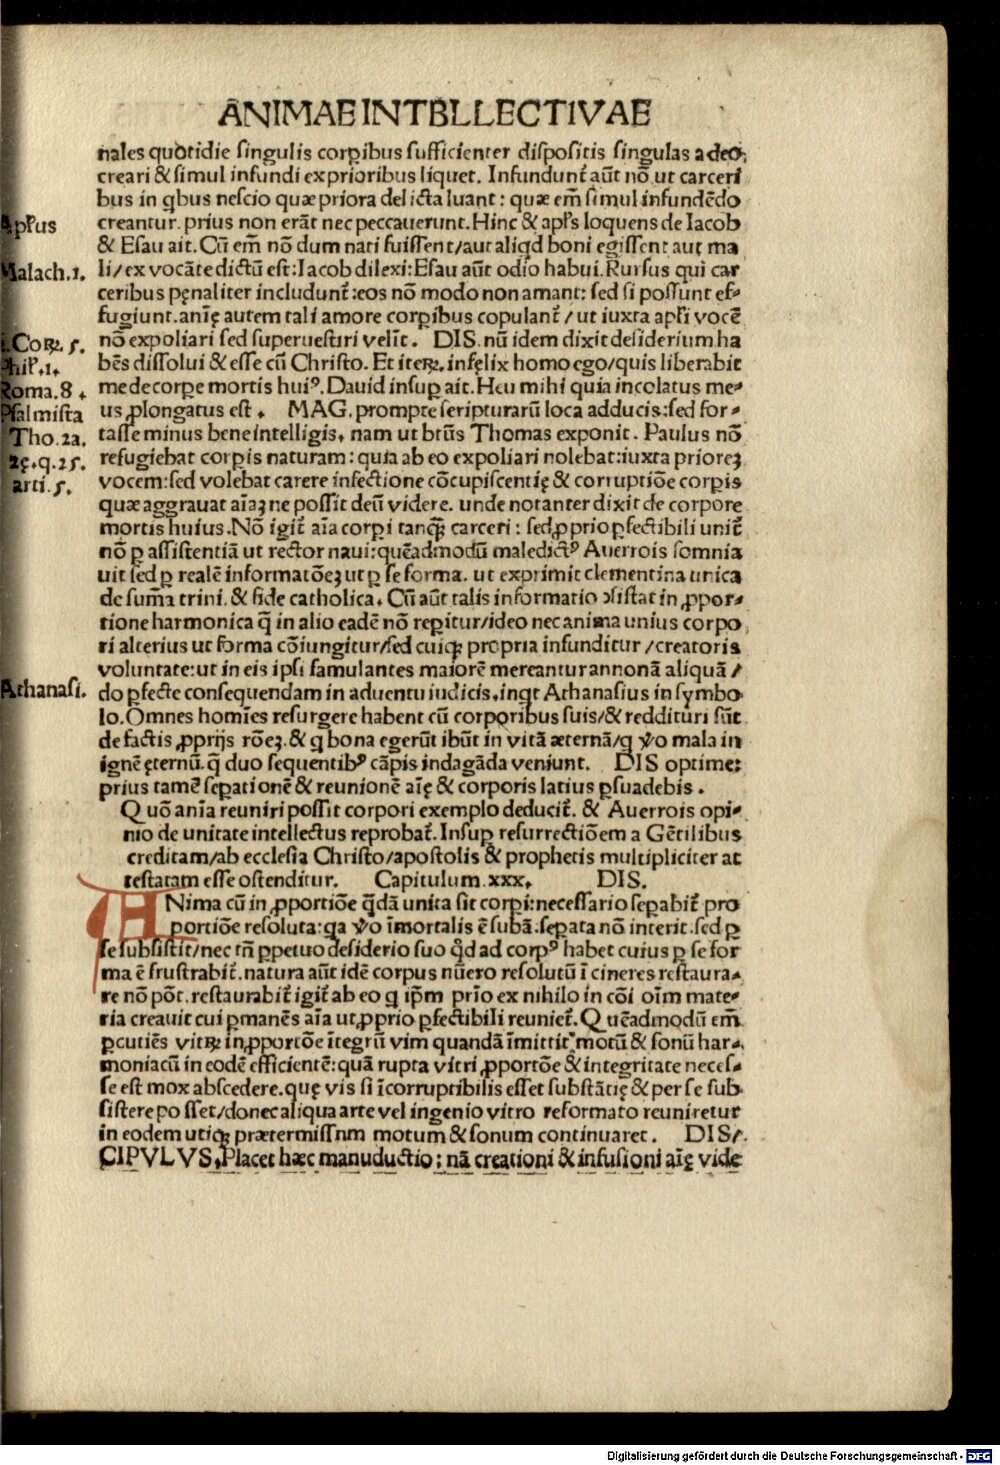 ANIMAE INTBLLECTIVAE
nales quotidie singulis corpibus sufficienter dispositis singulas adeo,
creari & simul infundi ex prioribus liquet. Infundunt᷑ aūt nō ut carceri
bus in qbus nescio quæ priora delicta luant: quæ em̄ simul infundēdo
Apl'us
creantur. prius non erāt nec peccauerunt. Hinc & apl's loquens de Iacob
& Esau ait. Cū em̄ nō dum nati fuissent/aut aliqd boni egissent aut ma
Malach.1.
li/ex vocāte dictū est: Iacob dilexi: Esau aūt odio habui. Rursus qui car
ceribus pęnaliter includunt᷑: eos nō modo non amant: sed si possunt ef-
fugiunt. anię autem tali amore corpibus copulant᷑/ ut iuxta apl'i vocē
i.Coꝝ. 5.
nō expoliari sed superuestiri velit᷑. DIS. nū idem dixit desiderium ha
Phil'.1.
bēs dissolui & esse cū Christo. Et iteꝝ. infęlix homo ego/quis liberabit
Roma.8.
me de corpe mortis huiꝰ. Dauid insup ait. Heu mihi quia incolatus me-
Psalmista
us ꝓlongatus est. MAG. prompte scripturarū loca adducis: sed for-
Tho.2a.
tasse minus bene intelligis. nam ut btūs Thomas exponit. Paulus nō
2ę.q.25.
refugiebat corpis naturam: quia ab eo expoliari nolebat: iuxta priorēȝ
arti.5.
vocem: sed volebat carere infectione cōcupiscentię & corruptiōe corpis
quæ aggrauat aīaȝ ne possit deū videre. unde notanter dixit de corpore
mortis huius. Nō igit᷑ aīa corpi tanqȝ carceri: sed ꝓprio ꝑfectibili unit᷑
nō ꝑ assistentiā ut rector naui: quēadmodū maledictꝰ Auerrois somnia
uit sed ꝑ realē informatōeȝ ut ꝑ se forma. ut exprimit clementina unica
de sum̄a trini. & fide catholica. Cū aūt talis informatio ꝯsistat in ꝓpor-
tione harmonica q̄ in alio eadē nō repitur/ideo nec anima unius corpo,
ri alterius ut forma cōiungitur/sed cuiqȝ propria infunditur/creatoris
voluntate: ut in eis ipsi famulantes maiorē mereantur annonā aliquā/
Athanasi.
do ꝑfecte consequendam in aduentu iudicis. inqt Athanasius in symbo
lo. Omnes homīes resurgere habent cū corporibus suis/& reddituri sūt
de factis ꝓprijs rōeȝ. & q bona egerūt ibūt in vitā æternā/q ꝟo mala in
ignē ęternū. q̄ duo sequentibꝰ cāpis indagāda veniunt. DIS optime:
prius tamē sepationē & reunionē aīę & corporis latius ꝑsuadebis.
Quō anīa reuniri possit corpori exemplo deducit᷑. & Auerrois opi-
nio de unitate intellectus reprobat᷑. Insup resurrectiōem a Gētilibus
creditam/ab ecclesia Christo/apostolis & prophetis multipliciter at
testatam esse ostenditur. Capitulum.xxx. DIS.
ANima cū in ꝓportiōe qdā unita sit corpi: necessario sepabit᷑ pro
portiōe resoluta: qa ꝟo īmortalis ē subā: sepata nō interit. sed ꝑ
se subsistit/nec tn̄ ꝑpetuo desiderio suo qd ad corpꝰ habet cuius ꝑ se for
ma ē frustrabit᷑. natura aūt idē corpus nūero resolutū ī cineres restaura-
re nō pōt. restaurabit᷑ igit᷑ ab eo q ip̄m prīo ex nihilo in cōi oīm mate-
ria creauit cui ꝑmanēs aīa ut ꝓprio ꝑfectibili reuniet᷑. Quēadmodū em̄
ꝑcutiēs vitꝝ in ꝓportōe ītegrū vim quandā īmittit motū & sonū har-
moniacū in eodē efficientē: quā rupta vitri ꝓportōe & integritate neces-
se est mox abscedere. quę vis si īcorruptibilis esset substātię & per se sub-
sistere posset/donec aliqua arte vel ingenio vitro reformato reuniretur
in eodem utiqȝ prætermissnm motum & sonum continuaret. DIS/.
CIPVLVS. Placet hæc manuductio: nā creationi & infusioni aīę vide
Digitalisierung gefördert durch die Deutsche Forschungsgemeinschaft - DFG